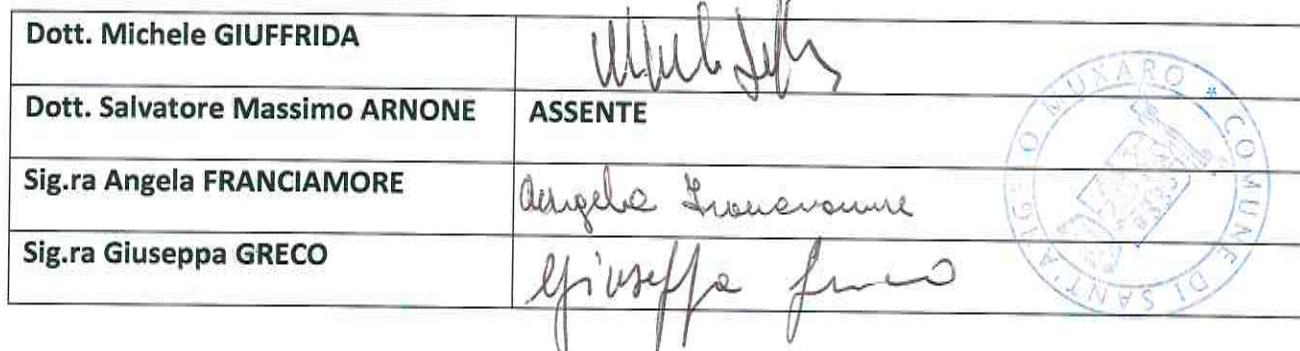 Dott. Michele GIUFFRIDA
Dott. Salvatore Massimo ARNONE ASSENTE
Sig.ra Angela FRANCIAMORE Angela Franciamore
Sig.ra Giuseppa GRECO Giuseppa Greco
COMUNE DI SANT'A
O MUXARO *